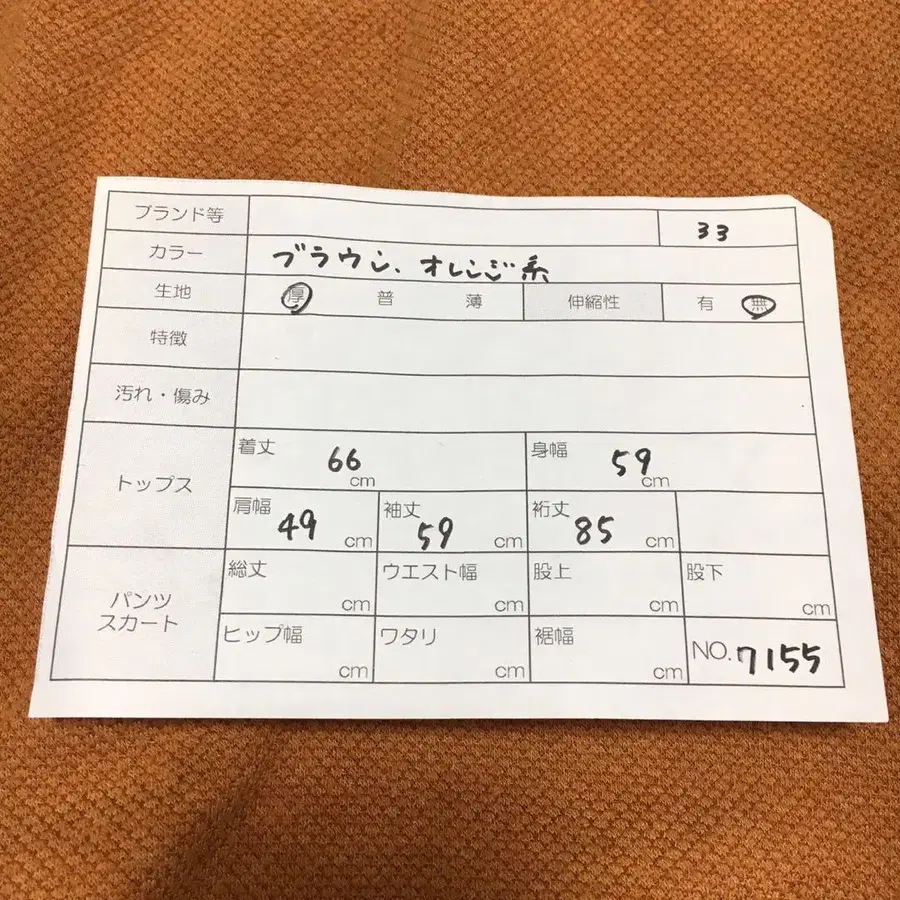 ブランド等 33
カラー ブラウン、オレンジ系
生地 厚 普 薄 伸縮性 有 無
特徴
汚れ・傷み
トップス
着丈 66 cm 身幅 59 cm
肩幅 49 cm 袖丈 59 cm 裄丈 85 cm
パンツ
スカート
総丈 cm ウエスト幅 cm 股上 cm 股下 cm
ヒップ幅 cm ワタリ cm 裾幅 cm NO. 7155